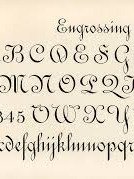 Engrossing
ABCDEFG
MNOPQR
345 UVWXY
bcdefghijklmnopqr